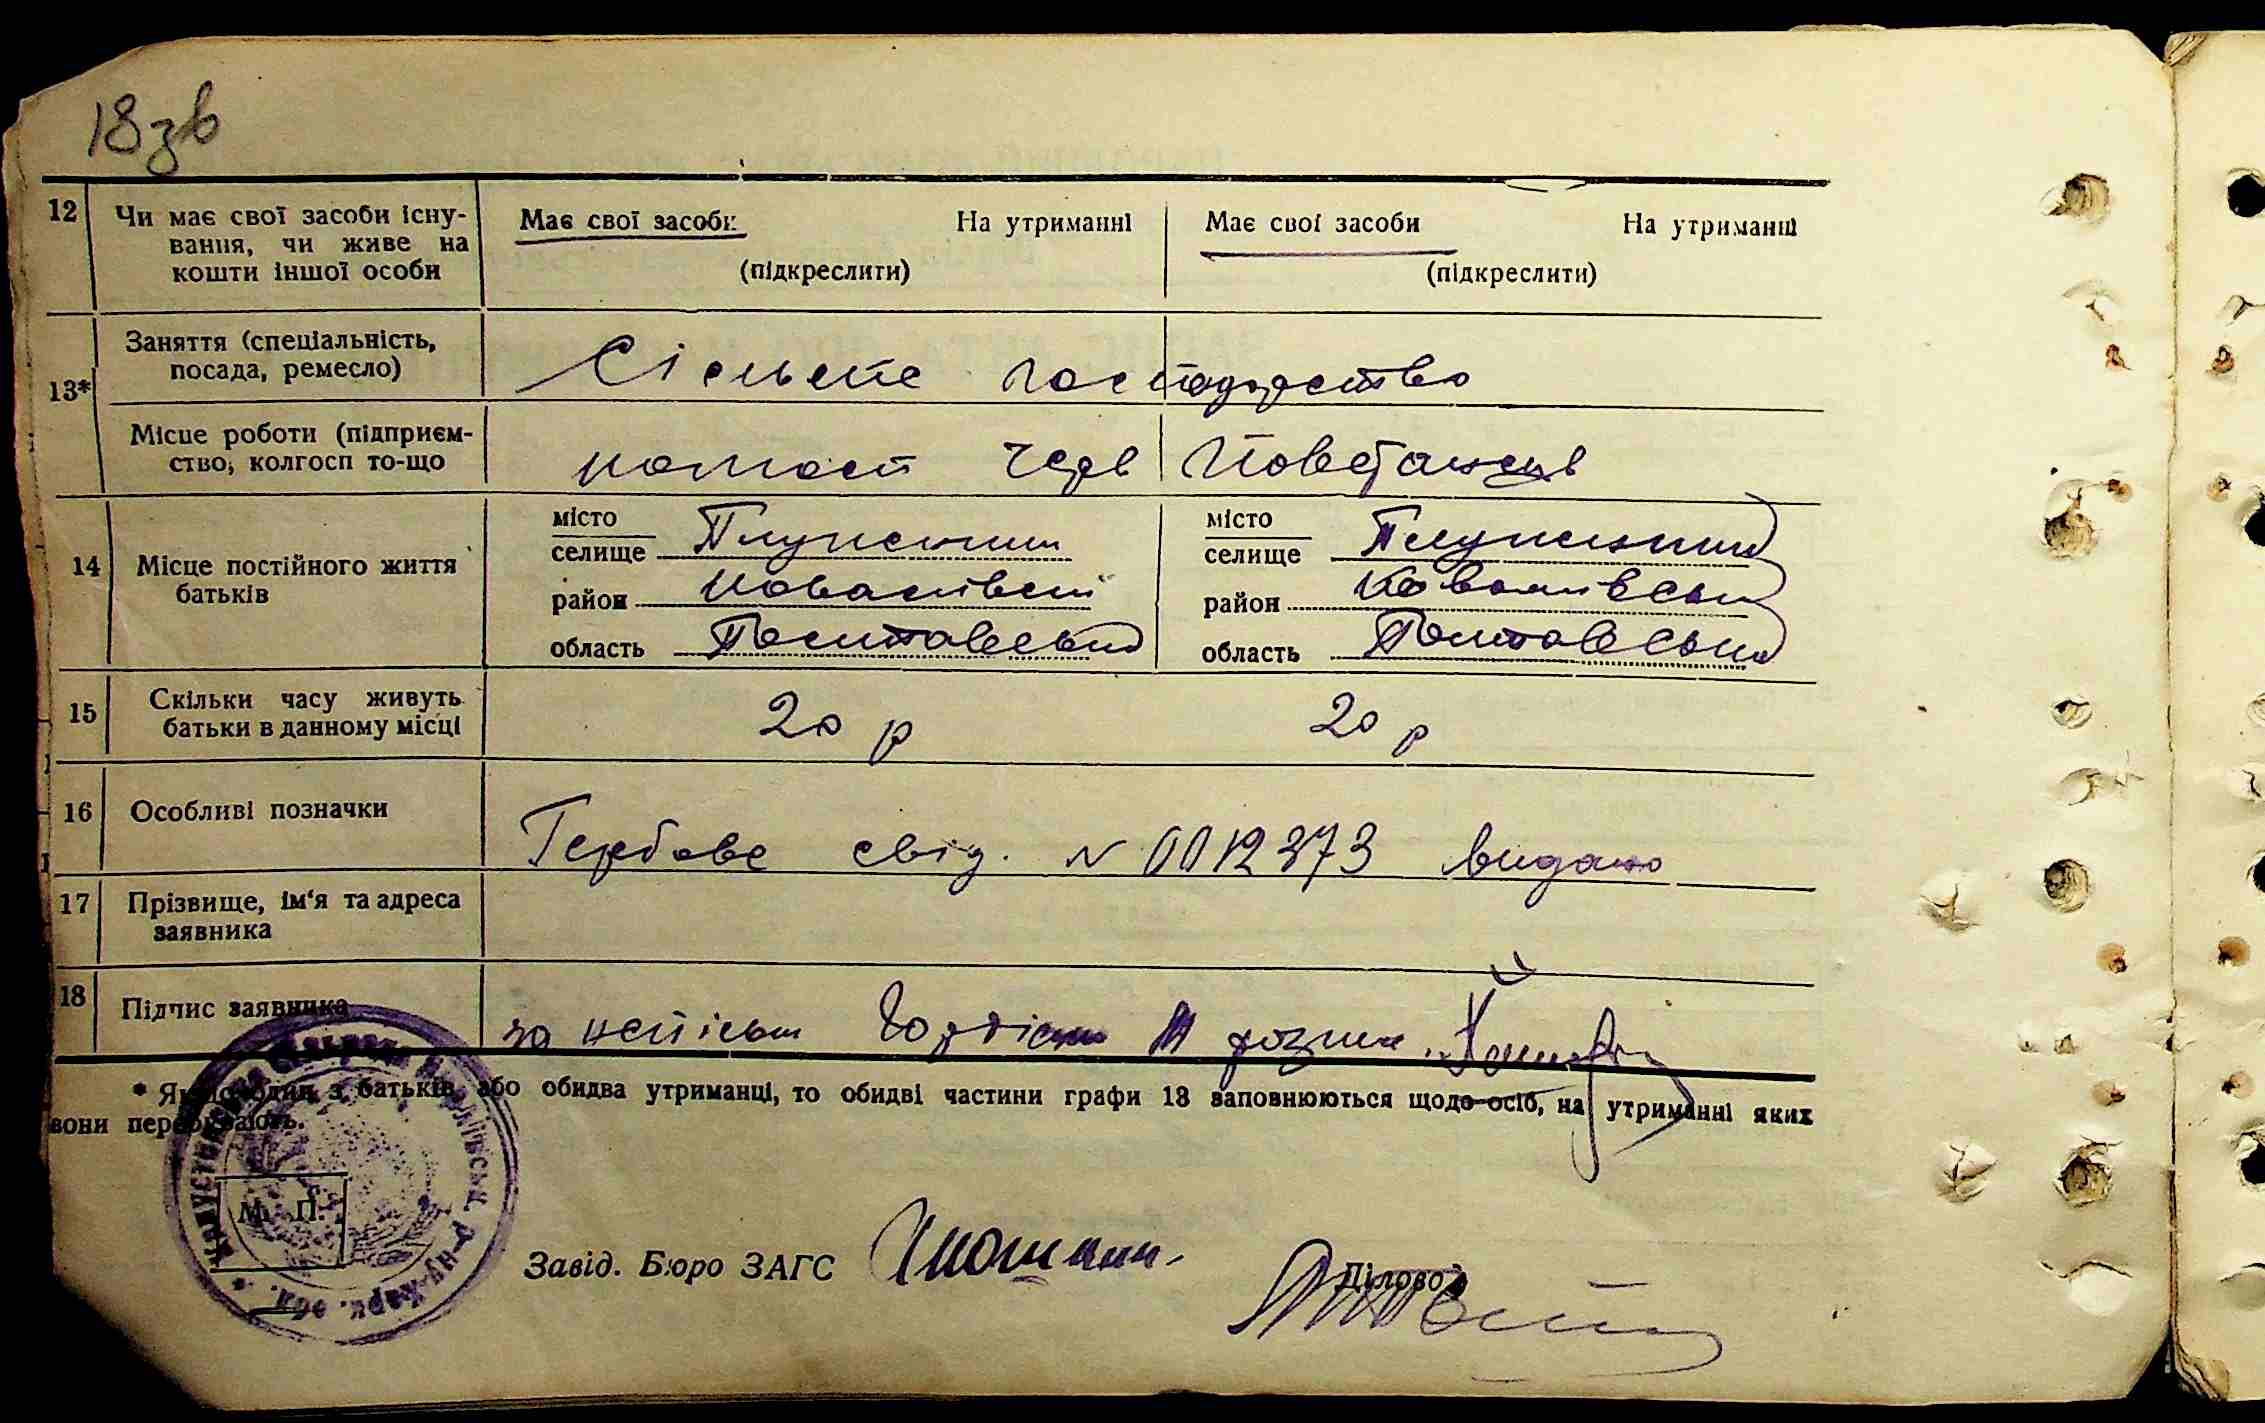 18зв
12 Чи має свої засоби існу-
вання, чи живе на
кошти іншої особи
Має свої засоби На утриманні
(підкреслити)
Має свої засоби На утриманні
(підкреслити)
13* Заняття (спеціальність,
посада, ремесло)
Сільське господарство
Місце роботи (підприєм-
ство, колгосп то-що
колгосп Черв Повстанець
14 Місце постійного життя
батьків
місто
селище
район Ковалівськ
область Полтавська
місто
селище
район Ковалівськ
область Полтавська
15 Скільки часу живуть
батьки в данному місці
20 р 20 р
16 Особливі позначки
Гербове свід. N 0012373 видано
17 Прізвище, ім'я та адреса
заявника
18 Підпис заявника
за розпис
* Якщо один з батьків, або обидва утриманці, то обидві частини графи 13 заповнюються щодо осіб, на утриманні яких
вони перебувають.
М. П.
Завід. Бюро ЗАГС
Діловод